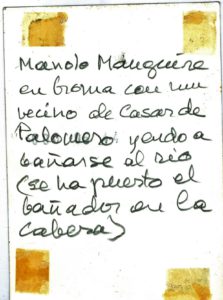 Manolo Manguire
en broma con un
vecino de Casar de
Palomero yendo a
bañarse al rio
(se ha puesto el
bañador en la
cabeza)